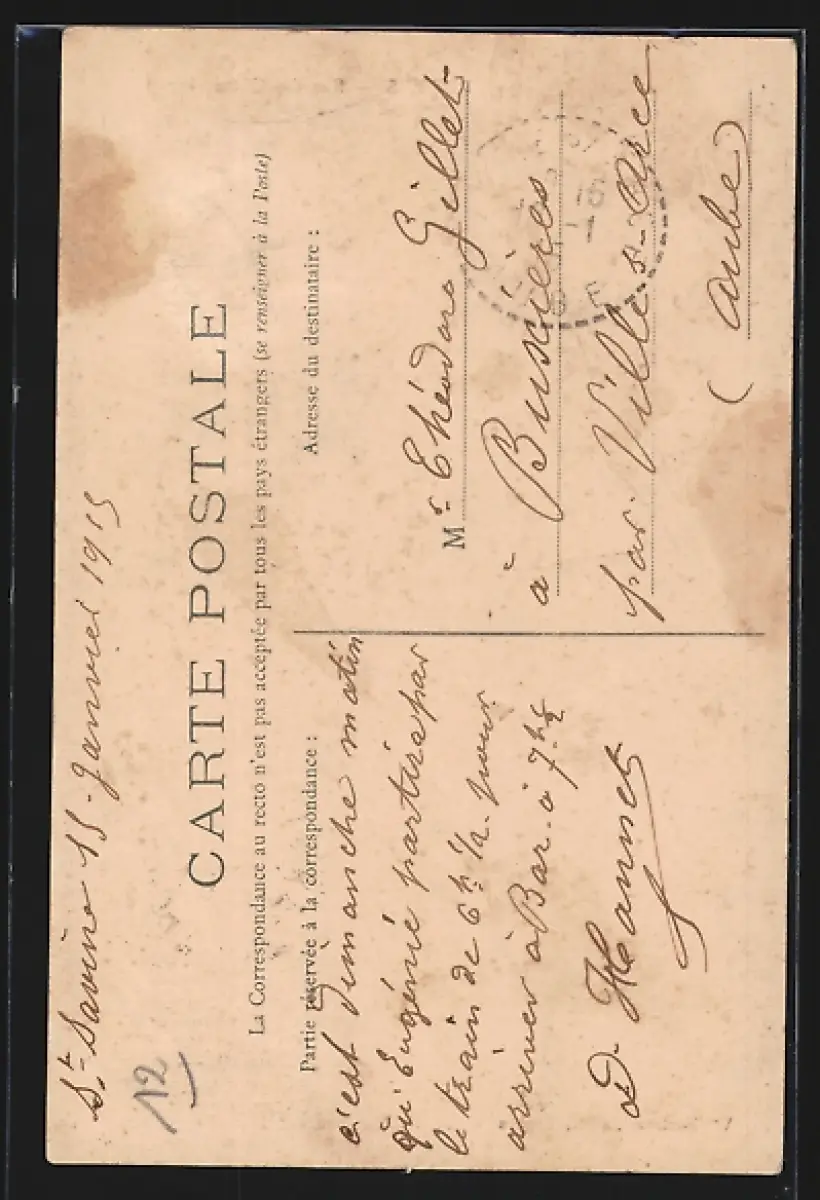 St Savine 15 Janvier 1915
12
CARTE POSTALE
La Correspondance au recto n'est pas acceptée par tous les pays étrangers (se renseigner à la Poste)
Partie réservée à la correspondance :
c'est Dimanche matin
qu'Eugénie partira par
le train de 6h 1/2 pour
arriver à Bar à 7h 1/2
D. Hannet
Adresse du destinataire :
Mr Théodore Gillet
à Buxières
par Ville s- Arce
(Aube)